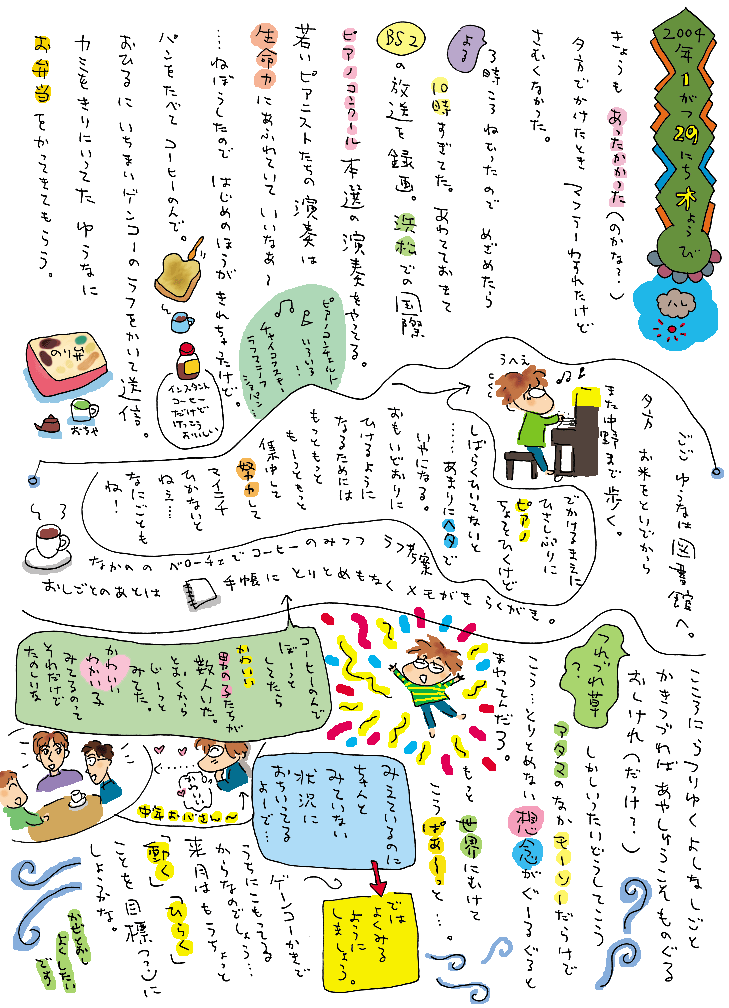 2004年1がつ29にち木ようび
ハレ
きょうも あったかかった(のかな?)
夕方でかけたとき マフラーわすれたけど
さむくなかった。
よる
7時ころ ねむったので めざめたら
10時すぎてた。あわてておきて
BS2の放送を録画。浜松での国際
ピアノコンクール本選の演奏をやってる。
若いピアニストたちの演奏は
生命力にあふれていて いいなぁ〜
…ねぼうしたので はじめのほうが きれちゃったけど。
ピアノコンチェルト
いろいろ…
チャイコフスキー
ラフマニーノフ
ショパン…
パンをたべて コーヒーのんで。
インスタント
コーヒー
だけど
けっこう
おいしい
おひるに いちまいゲンコーのラフをかいて送信。
カミをきりにいってた ゆうなに
お弁当をかってきてもらう。
のり弁
おちゃ
ごご ゆうなは図書館へ。
夕方 お米をといでから
また中野まで歩く。
うへえ
でかけるまえに
ひさしぶりに
ピアノ
ちょっとひくけど
しばらくひいてないと
……あまりにヘタで
いやになる。
おもいどおりに
ひけるように
なるためには
もっともっと
もーっともっと
集中して
努力して
マイニチ
ひかないと
ねぇ…
なにごとも
ね!
なかのの ベローチェで コーヒーのみつつ ラフ考案
おしごとのあとは 手帳に とりとめもなく メモがき らくがき。
こころに うつりゆく よしなしごと
かきつづれば あやしゅうこそ ものぐる
おしけれ(だっけ?)
つれづれ草
?
しかしいったいどうしてこう
アタマのなか モーソーだらけで
こう…とりとめない 想念が ぐーるぐると
まわってんだろ。
もっと 世界にむけて
こう ぱあーっと…。
コーヒーのんで
ぼーっと
してたら
かわいい
男の子たちが
数人いた。
とおくから
じーっと
みてた。
かわいい
わかい子
みてるのって
それだけで
たのしいな
かわいい
中年おじさん〜
みえているのに
ちゃんと
みていない
状況に
おちいってる
よーで…
では
よくみる
ように
しましょう。
ゲンコーかきで
うちにこもってる
からなのでしょう…
来月はもうちょっと
「動く」「ひらく」
ことを目標(?)に
しようかな。
かぜとおし
よくしたい
です